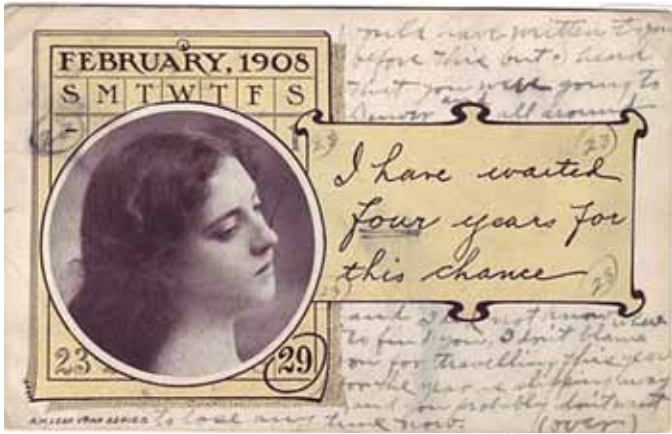 FEBRUARY, 1908
S M T W T F S
23
29
I have waited
four years for
this chance
23
23
23
23
have written to you
before this but I heard
that you were going to
Denver and all around
and did not know where
to find you, I don't blame
you for travelling this year
for the year is slipping away
and you probably don't want
to lose any time now. (over)